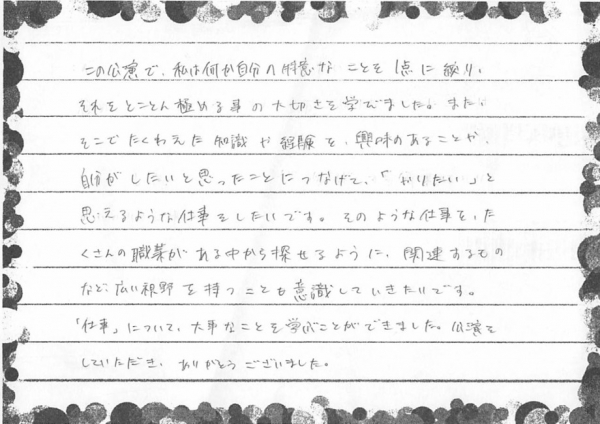 この公演で、私は何か自分の得意なことを1点に絞り、
それをとことん極める事の大切さを学びました。また、
そこでたくわえた知識や経験を、興味のあることや、
自分がしたいと思ったことにつなげて、「やりたい」と
思えるような仕事をしたいです。そのような仕事を、た
くさんの職業がある中から探せるように、関連するもの
など、広い視野を持つことも意識していきたいです。
「仕事」について、大事なことを学ぶことができました。公演を
していただき、ありがとうございました。